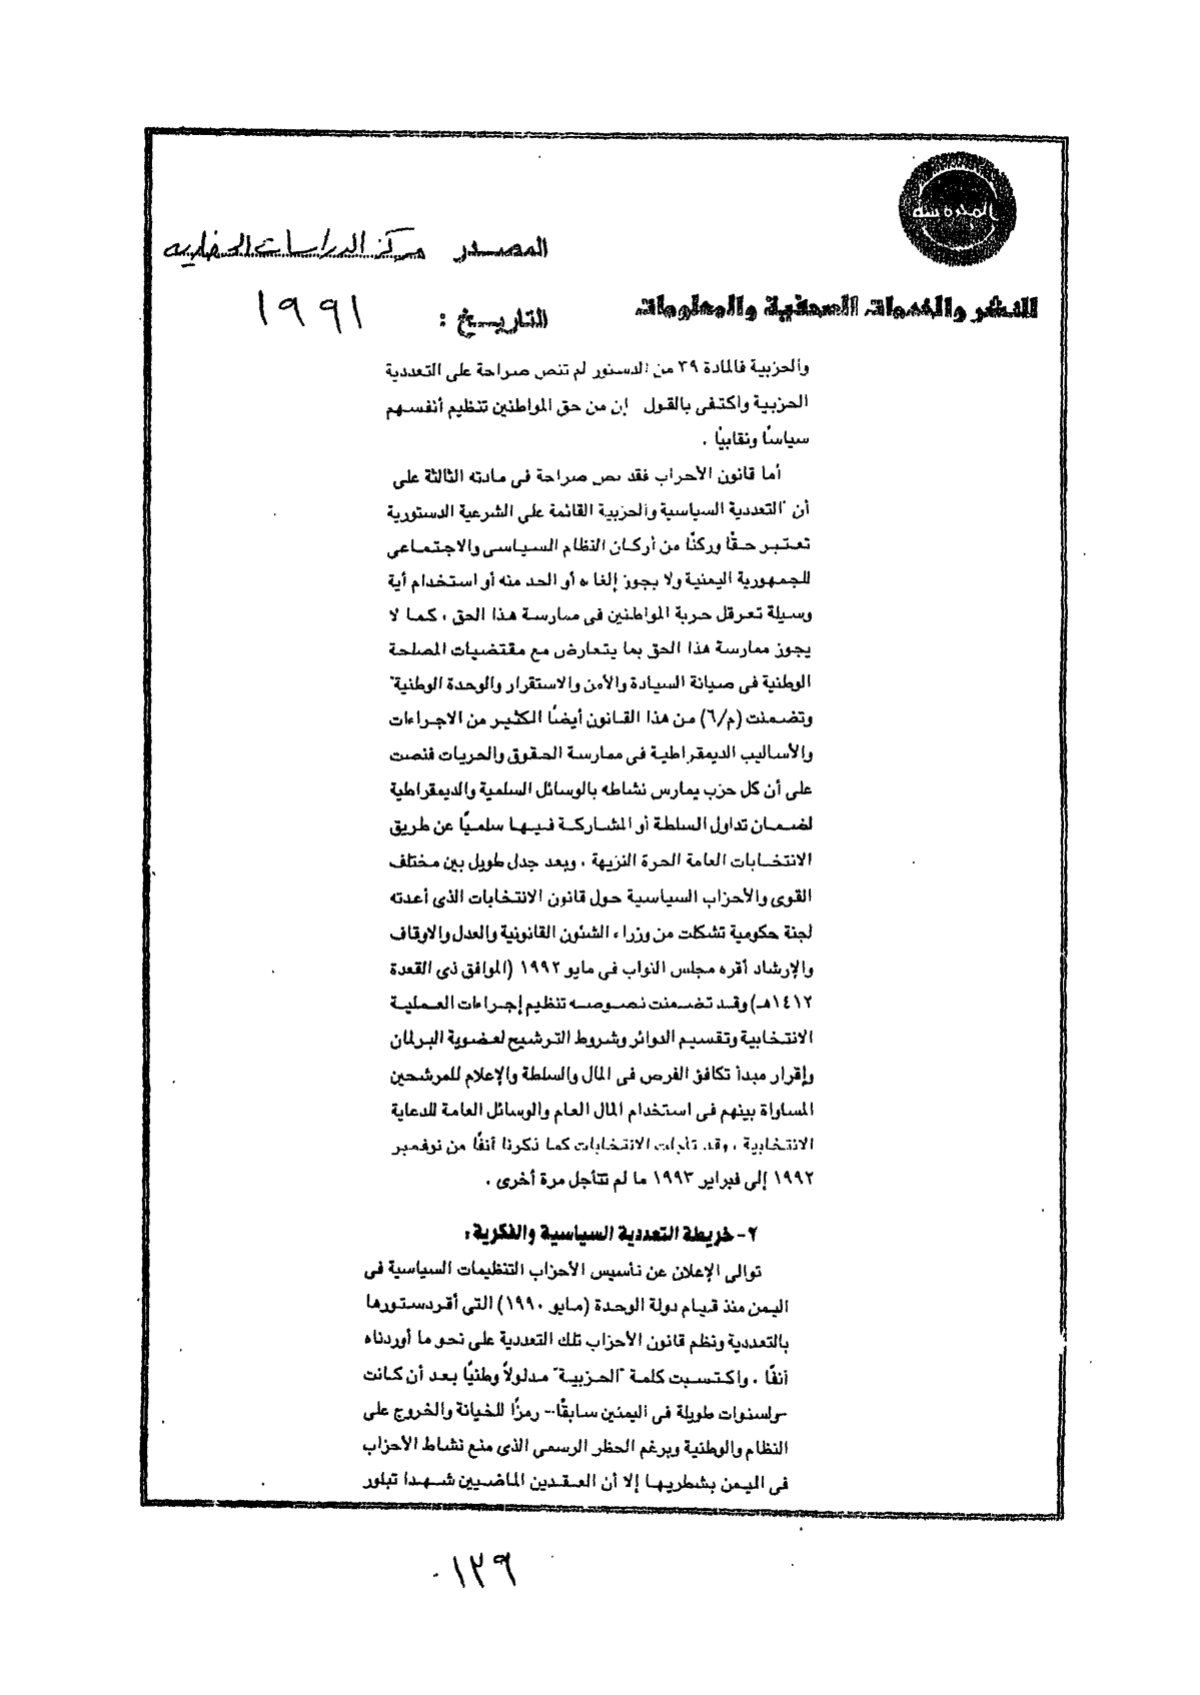 المصدر مركز الدراسات الحضاريه
النشر والخدمات الصحفية والمعلومات
التاريخ : ١٩٩١
والحزبية فالمادة ٣٩ من الدستور لم تنص صراحة على التعددية
الحزبية واكتفى بالقول إن من حق المواطنين تنظيم أنفسهم
سياسًا ونقابيًا .
أما قانون الأحزاب فقد نص صراحة فى مادته الثالثة على
أن "التعددية السياسية والحزبية القائمة على الشرعية الدستورية
تعتبر حقًا وركنًا من أركان النظام السياسى والاجتماعى
للجمهورية اليمنية ولا يجوز إلغاءه أو الحد منه أو استخدام أية
وسيلة تعرقل حرية المواطنين فى ممارسة هذا الحق ، كما لا
يجوز ممارسة هذا الحق بما يتعارض مع مقتضيات المصلحة
الوطنية فى صيانة السيادة والأمن والاستقرار والوحدة الوطنية"
وتضمنت (م/٦) من هذا القانون أيضًا الكثير من الاجراءات
والأساليب الديمقراطية فى ممارسة الحقوق والحريات فنصت
على أن كل حزب يمارس نشاطه بالوسائل السلمية والديمقراطية
لضمان تداول السلطة أو المشاركة فيها سلميًا عن طريق
الانتخابات العامة الحرة النزيهة . وبعد جدل طويل بين مختلف
القوى والأحزاب السياسية حول قانون الانتخابات الذى أعدته
لجنة حكومية تشكلت من وزراء الشئون القانونية والعدل والاوقاف
والإرشاد أقره مجلس النواب فى مايو ١٩٩٢ (الموافق ذى القعدة
١٤١٢هـ) وقد تضمنت نصوصه تنظيم إجراءات العملية
الانتخابية وتقسيم الدوائر وشروط الترشيح لعضوية البرلمان
وإقرار مبدأ تكافؤ الفرص فى المال والسلطة والإعلام للمرشحين
المساواة بينهم فى استخدام المال العام والوسائل العامة للدعاية
الانتخابية . وقد تأجلت الانتخابات كما ذكرنا أنفًا من نوفمبر
١٩٩٢ إلى فبراير ١٩٩٣ ما لم تتأجل مرة أخرى .
٢- خريطة التعددية السياسية والفكرية :
توالى الإعلان عن تأسيس الأحزاب التنظيمات السياسية فى
اليمن منذ قيام دولة الوحدة (مايو ١٩٩٠) التى أقر دستورها
بالتعددية ونظم قانون الأحزاب تلك التعددية على نحو ما أوردناه
أنفًا . واكتسبت كلمة "الحزبية" مدلولاً وطنيًا بعد أن كانت
-ولسنوات طويلة فى اليمنين سابقًا- رمزًا للخيانة والخروج على
النظام والوطنية وبرغم الحظر الرسمى الذى منع نشاط الأحزاب
فى اليمن بشطريها إلا أن العقدين الماضيين شهدا تبلور
١٣٩